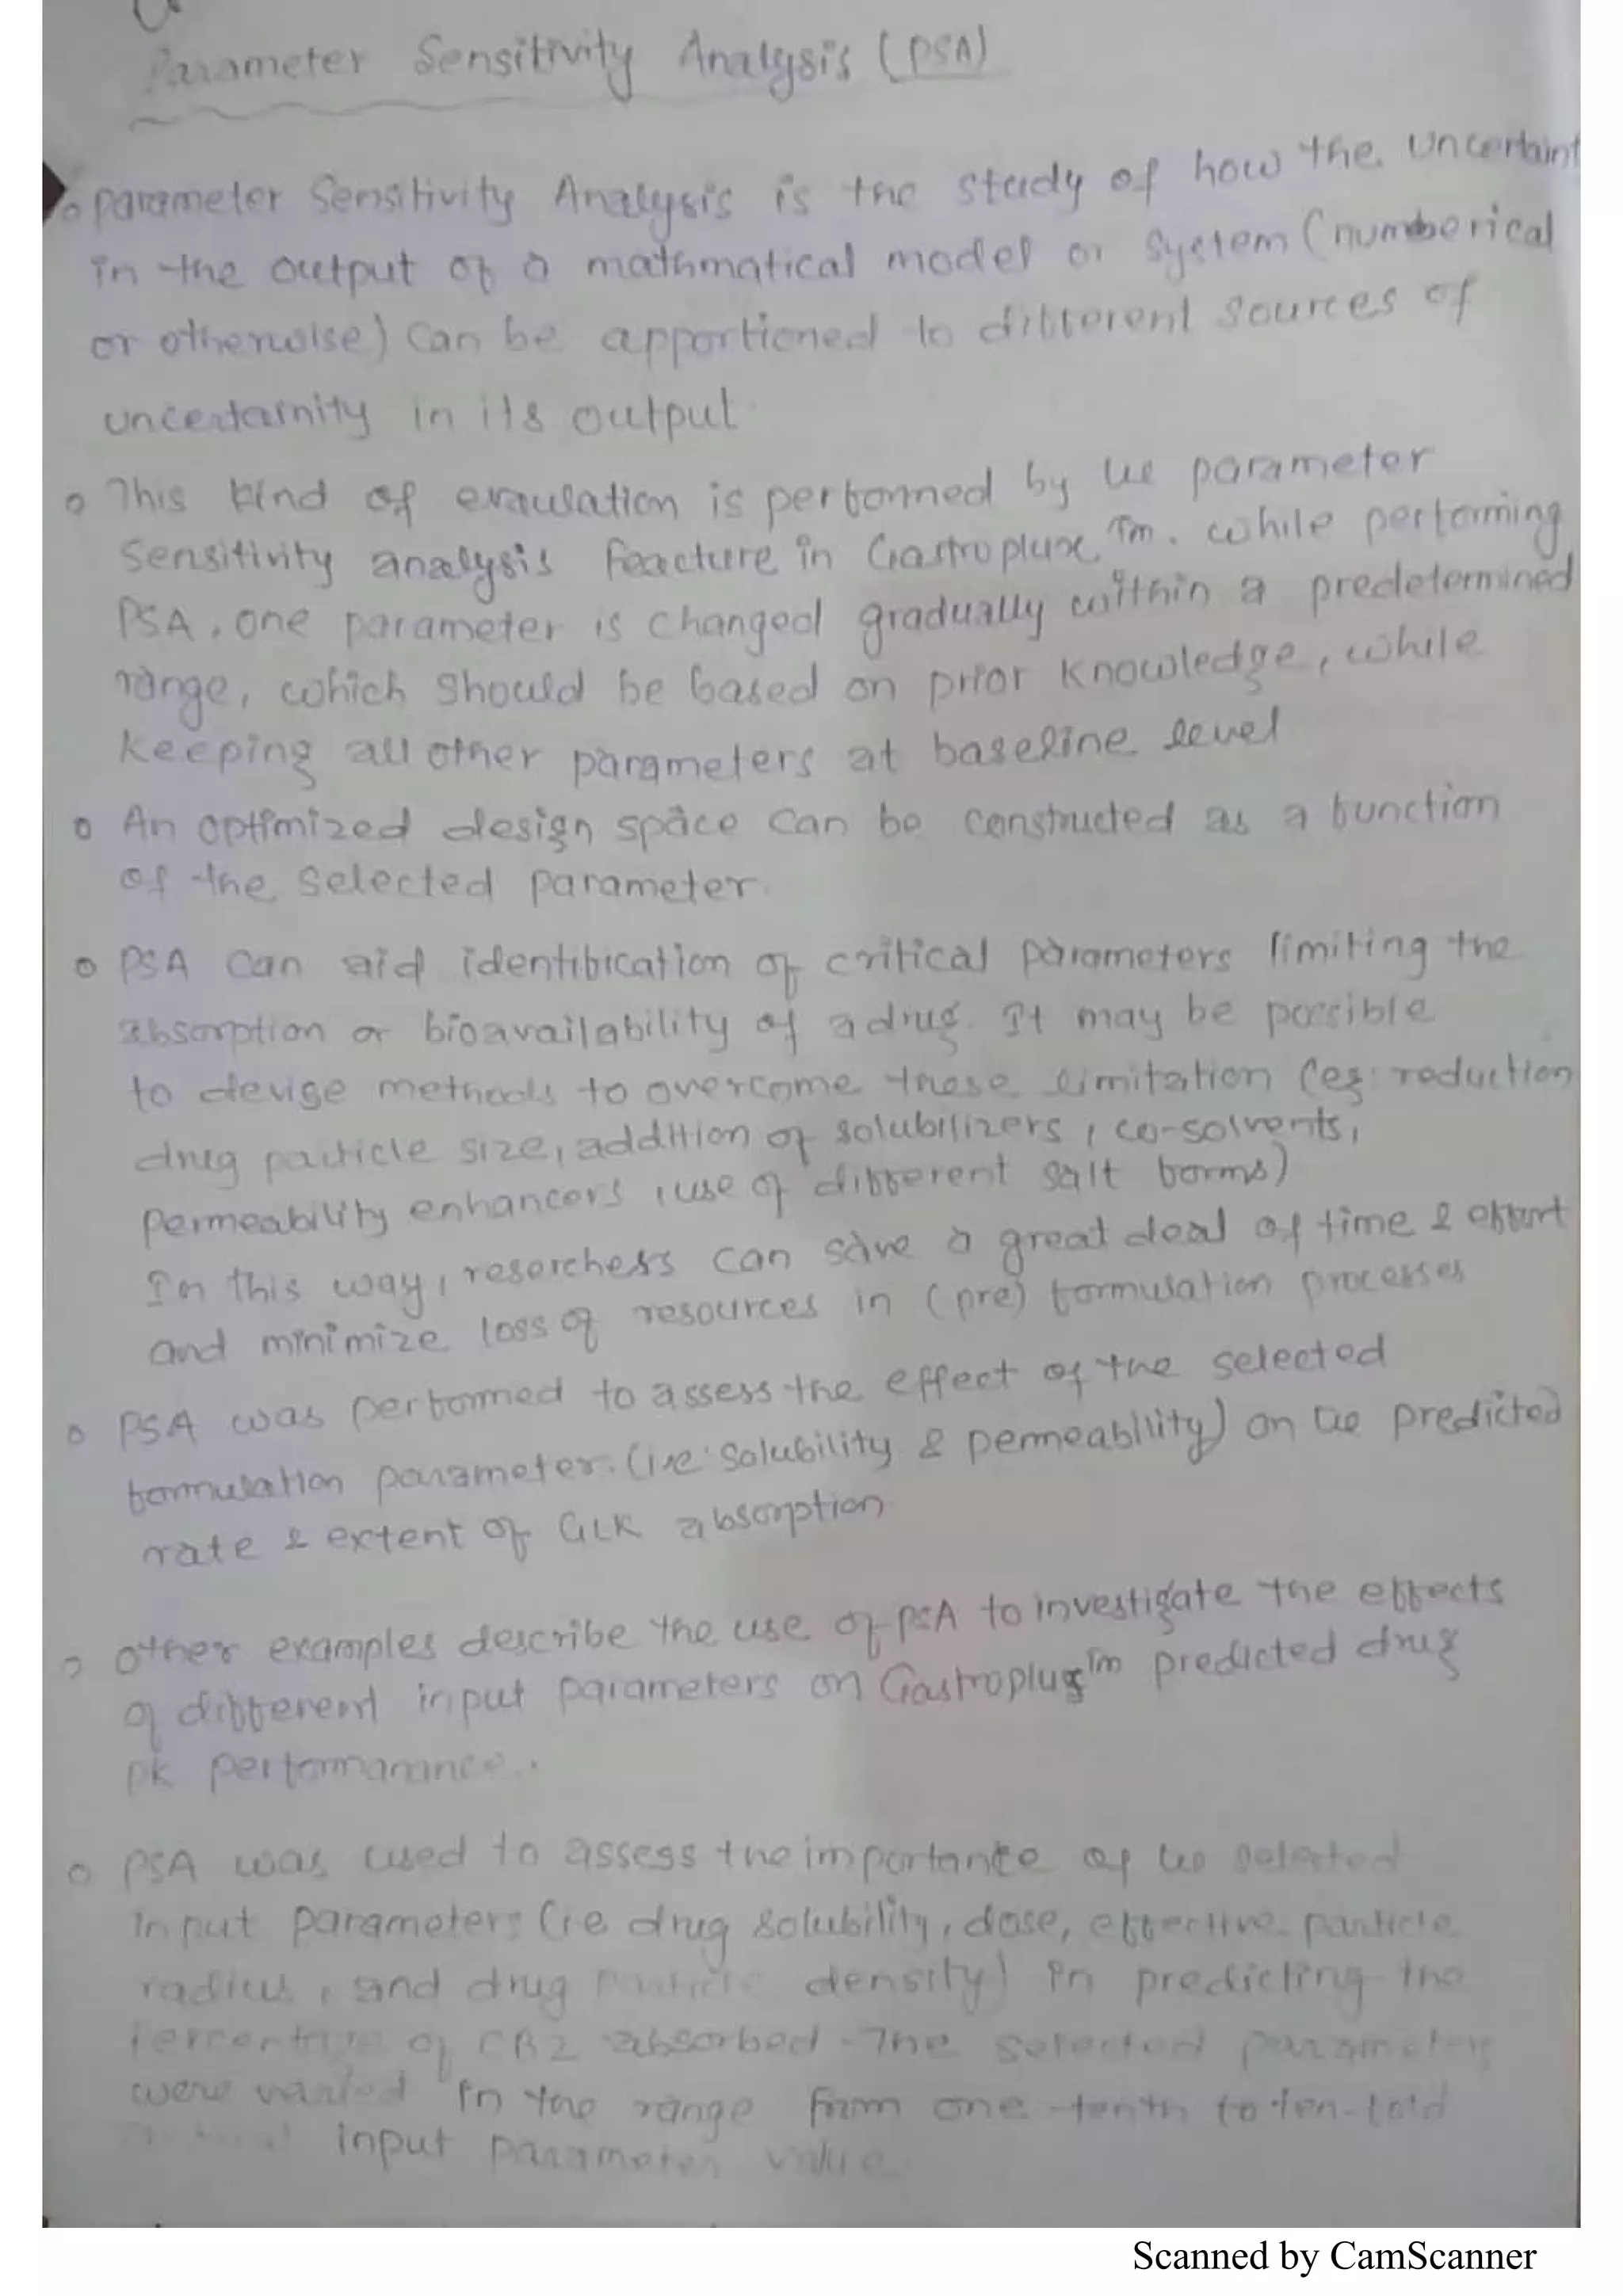 Parameter Sensitivity Analysis (PSA)
o parameter Sensitivity Analysis is the study of how the Uncertaint
in the output of a mathmatical model or System (numberical
or otherwise) can be apportioned to different sources of
uncertainity in its output
o This kind of evaulation is performed by the parameter
Sensitivity analysis feacture in Gastroplux Tm. while performing
PSA, one parameter is changed gradually within a predetermined
range, which should be based on prior knowledge, while
keeping all other parameters at baseline level
o An optimized design space can be constructed as a function
of the selected parameter.
o PSA can aid identification of critical parameters limiting the
absorption or bioavailability of a drug. It may be possible
to devise methods to overcome these limitation (eg: reduction
drug particle size, addition of solubilizers, co-solvents,
permeability enhancers, use of different salt forms)
In this way, reserchers can save a great deal of time & effort
and minimize loss of resources in (pre) formulation processes
o PSA was performed to assess the effect of the selected
formulation parameter. (i.e: solubility & permeability) on the predicted
rate & extent of GLK absorption
o other examples describe the use of PSA to investigate the effects
of different input parameters on Gastroplus Tm predicted drug
PK performanance.
o PSA was used to assess the importance of the selected
input parameters (i.e drug solubility, dose, effective particle
radius, and drug particle density) in predicting the
percentage of CBZ absorbed - The selected parameters
were varied in the range from one tenth to ten-fold
input parameter value
Scanned by CamScanner